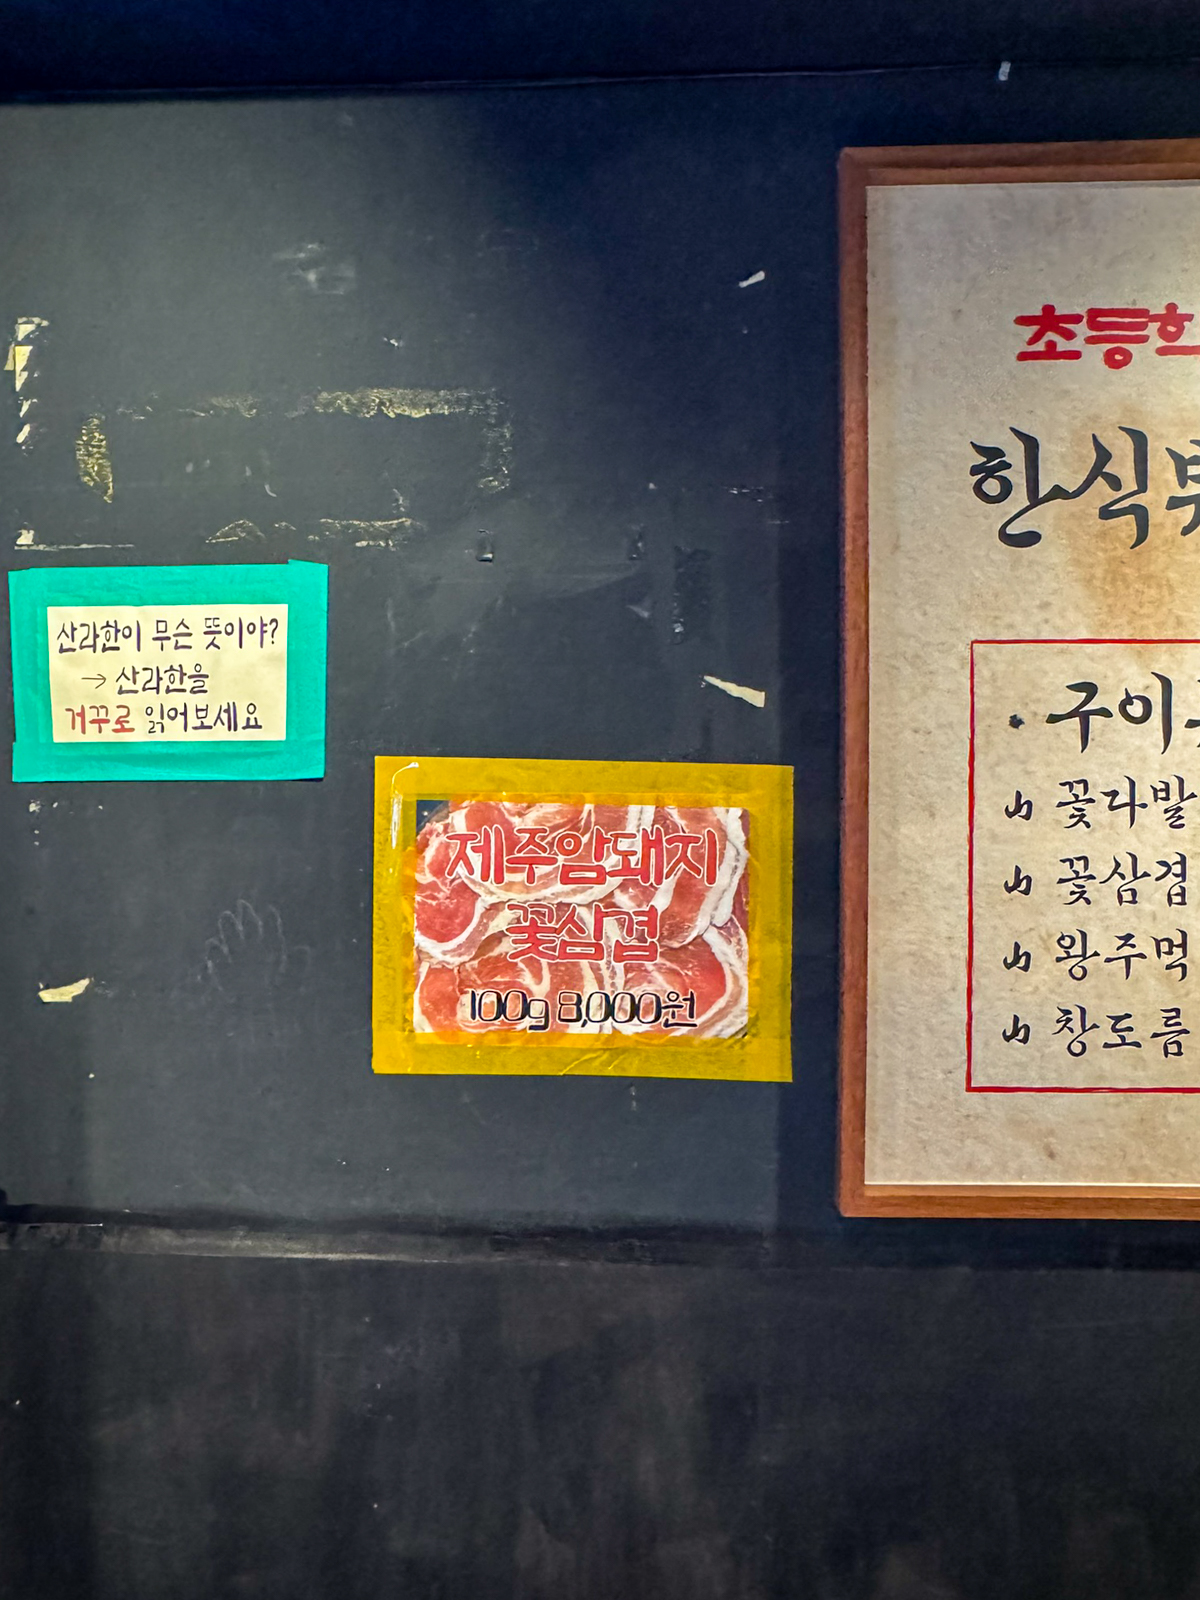 산라한이 무슨 뜻이야?
→ 산라한을
거꾸로 읽어보세요
제주암돼지
꽃삼겹
100g 8,000원
초등
한식
구이
꽃다발
꽃삼겹
왕주먹
창도름